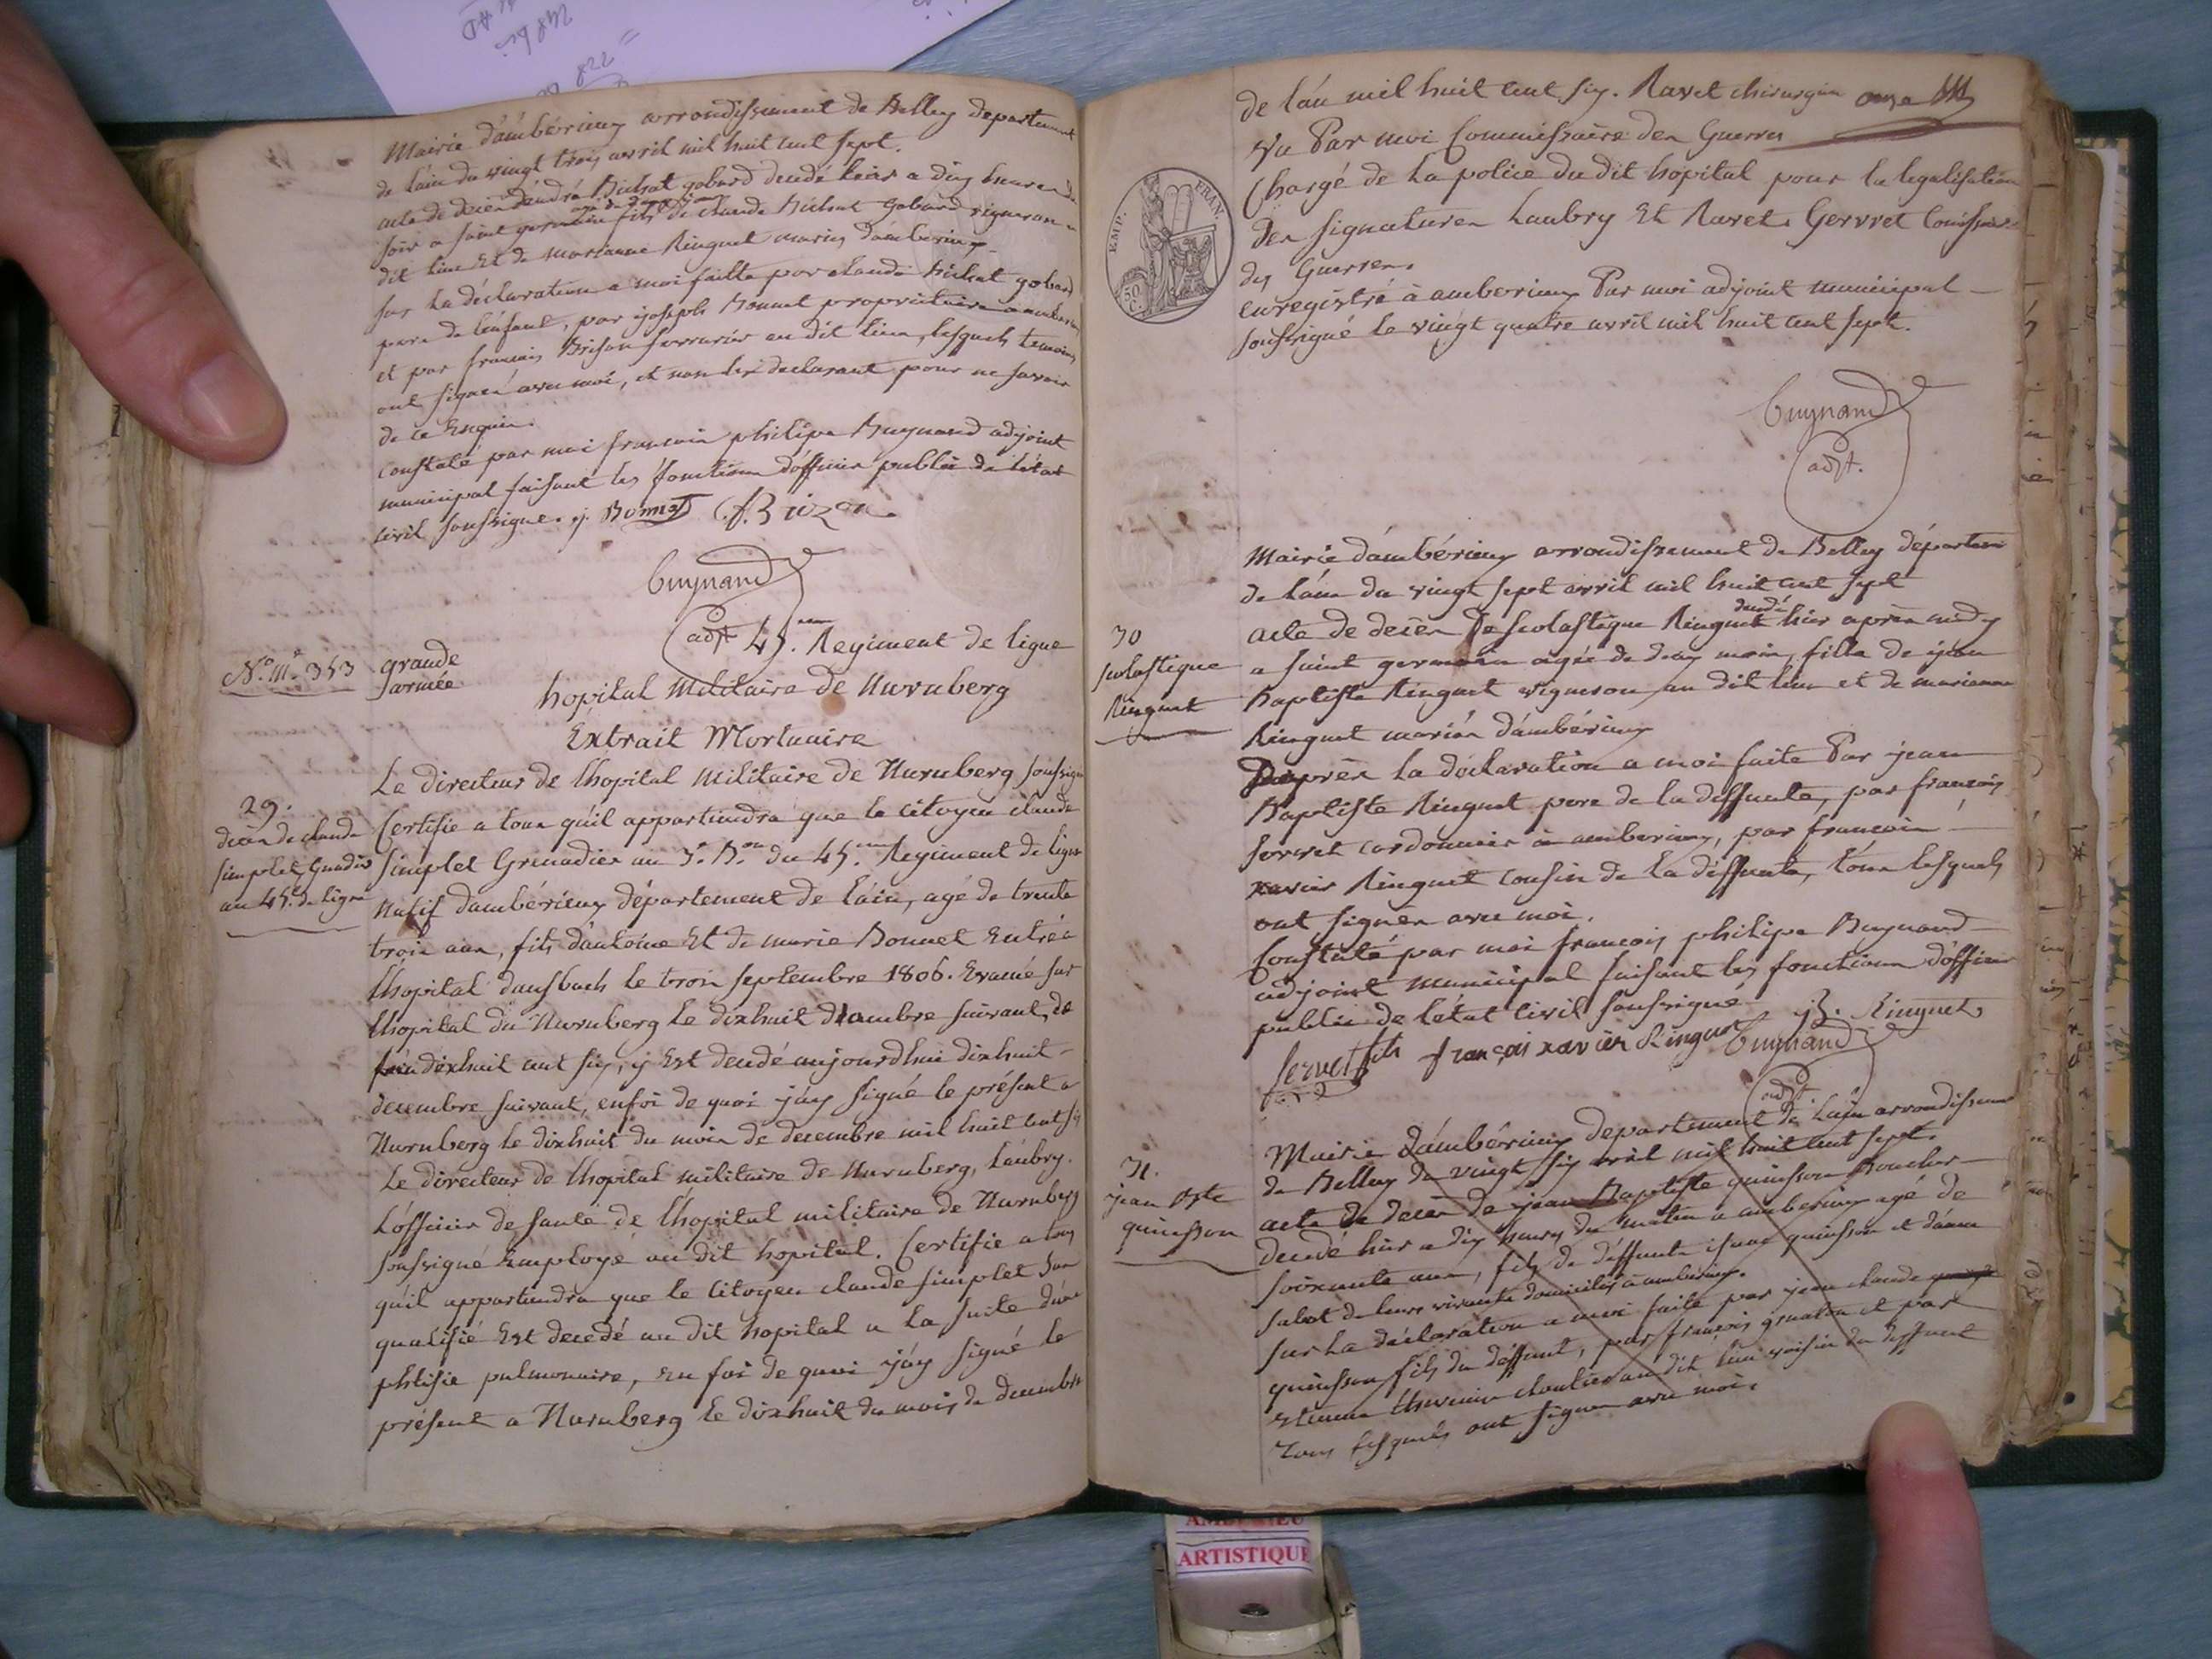 Mairie d'ambérieux arrondissement de Belley departement
de l'ain du vingt trois avril mil huit cent sept.
acte de decès d'andré Bichat gobard decedé hier a dix heures du
soir a saint germain fils de claude Bichat gobard vigneron au
dit lieu Et de marianne Ringuet mariés d'amberieux
sur la déclaration a moi faitte par claude bichat gobard
pere de l'enfant, par joseph Bonnet propriétaire a amberieux
et par francois Brison serrurier au dit lieu, lesquels temoins
ont signés avec moi, et non les declarant pour ne savoir
de ce Enquis.
constaté par moi francois philipe Buynand adjoint
municipal faisant les fonctions d'officier public de l'état
civil soussigné. j. Bonnet f. Brizon
Buynand
adjt
N.o M.le 353 grande armée 45.eme Regiment de ligne
hopital Militaire de Nurnberg
Extrait Mortuaire
29.
decès de claude
simplet Grenadier
au 45.e de ligne
Le directeur de l'hopital Militaire de Nurnberg soussigné
Certifie a tous qu'il appartiendra que le citoyen claude
simplet Grenadier au 3.e B.on du 45.eme Regiment de ligne
natif d'ambérieux département de l'ain, agé de trente
trois ans, fils d'antoine Et de marie Bonnet Entré a
l'hopital dansbach le trois septembre 1806. Evacué sur
l'hopital du Nurnberg le dixhuit dcembre suivant, de
l'an dixhuit cent six, y Est decedé aujourdhui dixhuit
decembre suivant, enfoi de quoi j'ay signé le présent a
Nurnberg le dixhuit du mois de decembre mil huit cent six
Le directeur de l'hopital militaire de Nurnberg, Laubry.
L'officier de santé de l'hopital militaire de Nurnberg
soussigné Employé au dit hopital. Certifie a tous
qu'il appartiendra que le Citoyen claude simplet sus
qualifié Est decedé au dit hopital a la suite d'une
phtisie pulmonaire, en foi de quoi j'ay signé le
présent a Nurnberg le dixhuit du mois de decembre
de l'an mil huit cent six. Ravet chirurgien
Vu Par moi Commissaire des Guerres
Chargé de la police du dit hopital pour la legalisation
des signatures Laubry Et Ravet. Gervret Comissaire
des Guerres.
enregistré à amberieux Par moi adjoint municipal
soussigné le vingt quatre avril mil huit cent sept.
EMP. FRAN.
50 C.
Buynand
adjt.
Mairie d'ambérieux arrondissement de Belley départem
de l'ain du vingt sept avril mil huit cent sept
30
scolastique
Ringuet
acte de decès De scolastique Ringuet decedé hier après midy
a saint germain agée de deux mois, fille de jean
Baptiste Ringuet vigneron au dit lieu et de marianne
Ringuet mariés d'ambérieux
D'après la déclaration a moi faite Par jean
Baptiste Ringuet pere de la deffunte, par francois
servet cordonnier à amberieux, par francois
xavier Ringuet cousin de la deffunte, tous lesquels
ont signés avec moi.
Constaté par moi francois philipe Buynand
adjoint municipal faisant les fonctions d'officier
public de l'état civil soussigné jB. Ringuet
servet fils françois xavier Ringuet Buynand
adjt.
31.
jean Bste
quinsson
Mairie d'ambérieux departement de l'ain arrondissement
de Belley du vingt six avril mil huit cent sept.
acte de decès de jean Baptiste quinsson Boucher
decedé hier a dix heures du matin a amberieux agé de
soixante ans, fils de deffunts isaac quinsson et d'anne
salut de leurs vivants domiciliés a amberieux.
sur la déclaration a moi faite par jean claude
quinsson fils du deffunt, par francois grnaton et par
etienne thevenin au dit lieu voisin du deffunt
tous lesquels ont signés avec moi.
AMBERIEU
ARTISTIQUE